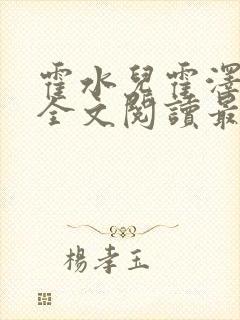 霍水兒霍澤
全文閱讀最
楊孝玉